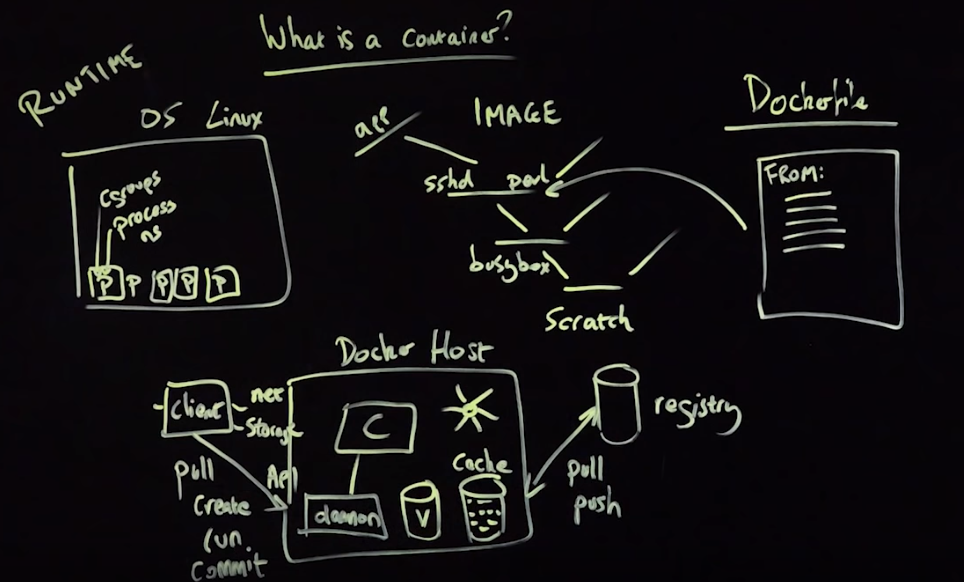 What is a Container?
RUNTIME
OS Linux
cgroups
process
ns
P P P P P
IMAGE
app
sshd perl
busybox
Scratch
Dockerfile
FROM:
Docker Host
client
net
Storage
API
pull
Create
run.
Commit
C
daemon
V
Cache
registry
pull
push